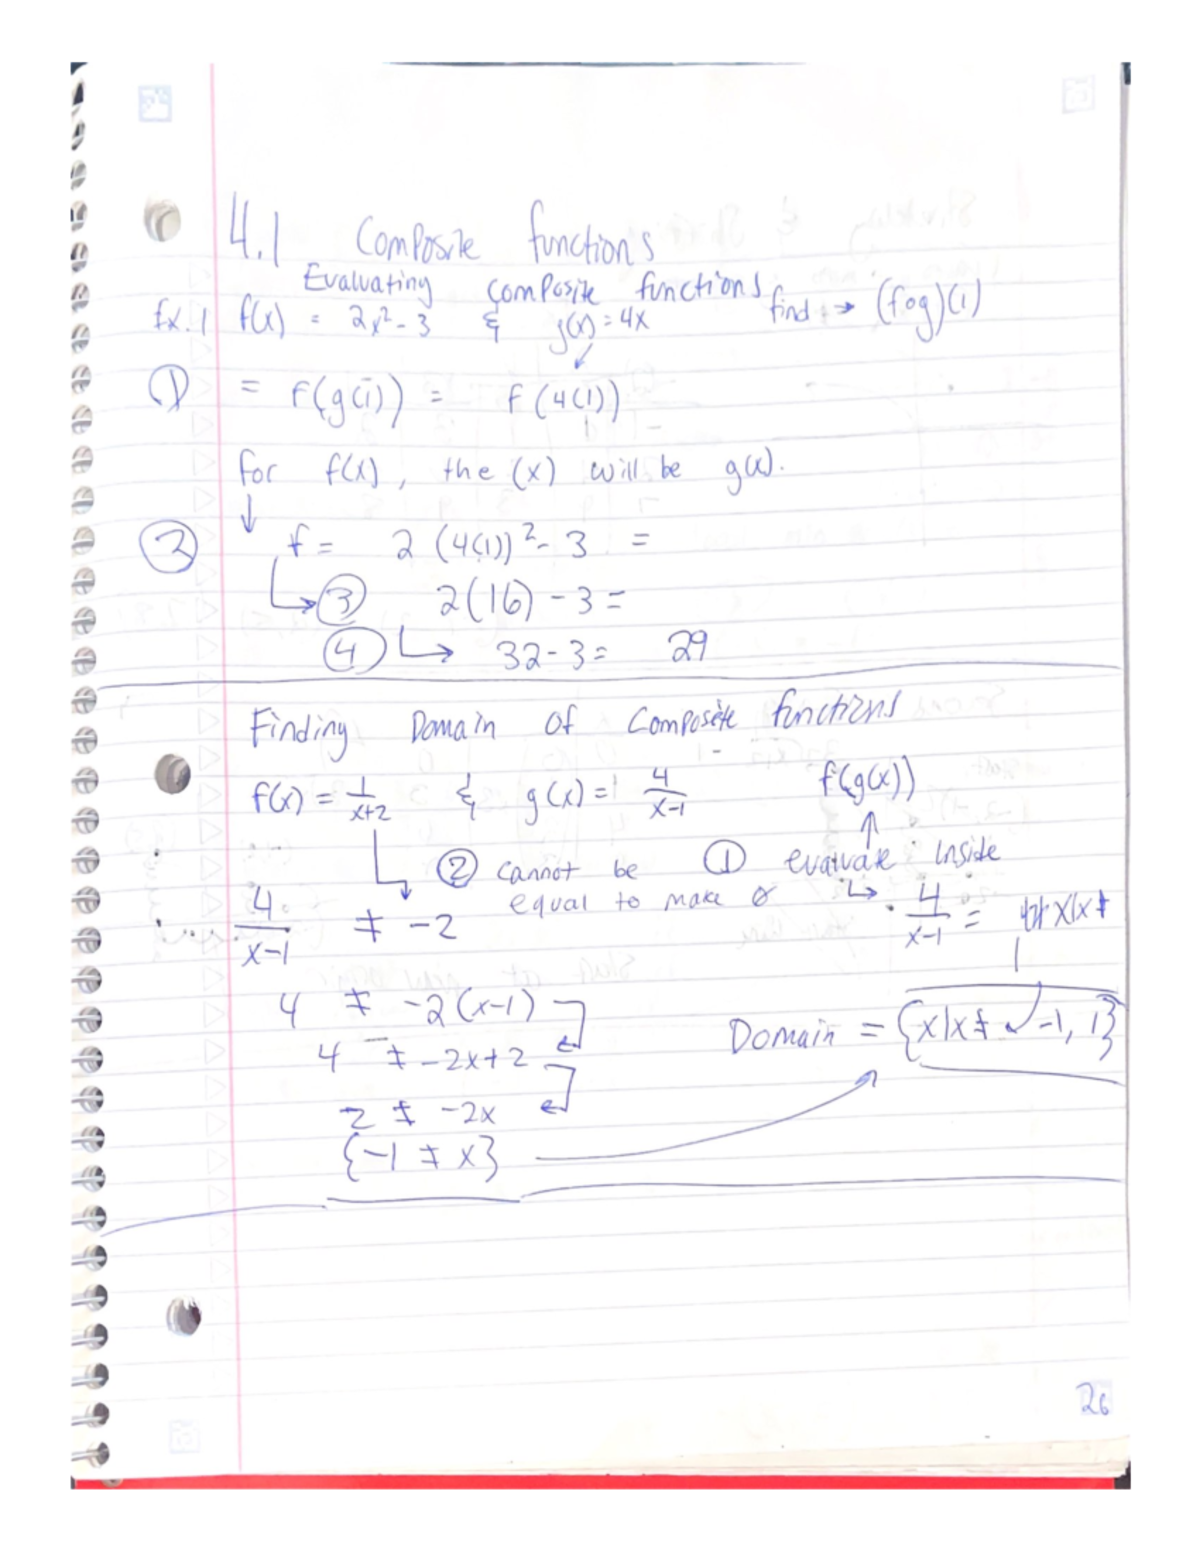 4.1 Composite functions
Evaluating composite functions
Ex. 1 f(x) = 2x² - 3 & g(x) = 4x find → (fog)(1)
① = f(g(1)) = f(4(1))
for f(x), the (x) will be g(x).
② f = 2(4(1))² - 3 =
③ 2(16) - 3 =
④ 32 - 3 = 29
Finding Domain of Composite functions
f(x) = 1/x+2 & g(x) = 4/x-1 f(g(x))
② cannot be equal to make ∅
① evaluate inside
4/x-1 ≠ -2
4/x-1 = x|x ≠ 1
4 ≠ -2(x-1)
Domain = {x|x ≠ -1, 1}
4 ≠ -2x+2
2 ≠ -2x
{-1 ≠ x}
26